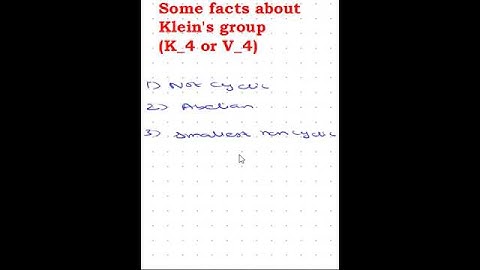 Some facts about
Klein's group
(K_4 or V_4)
1) Not cyclic
2) Abelian
3) Smallest non cyclic